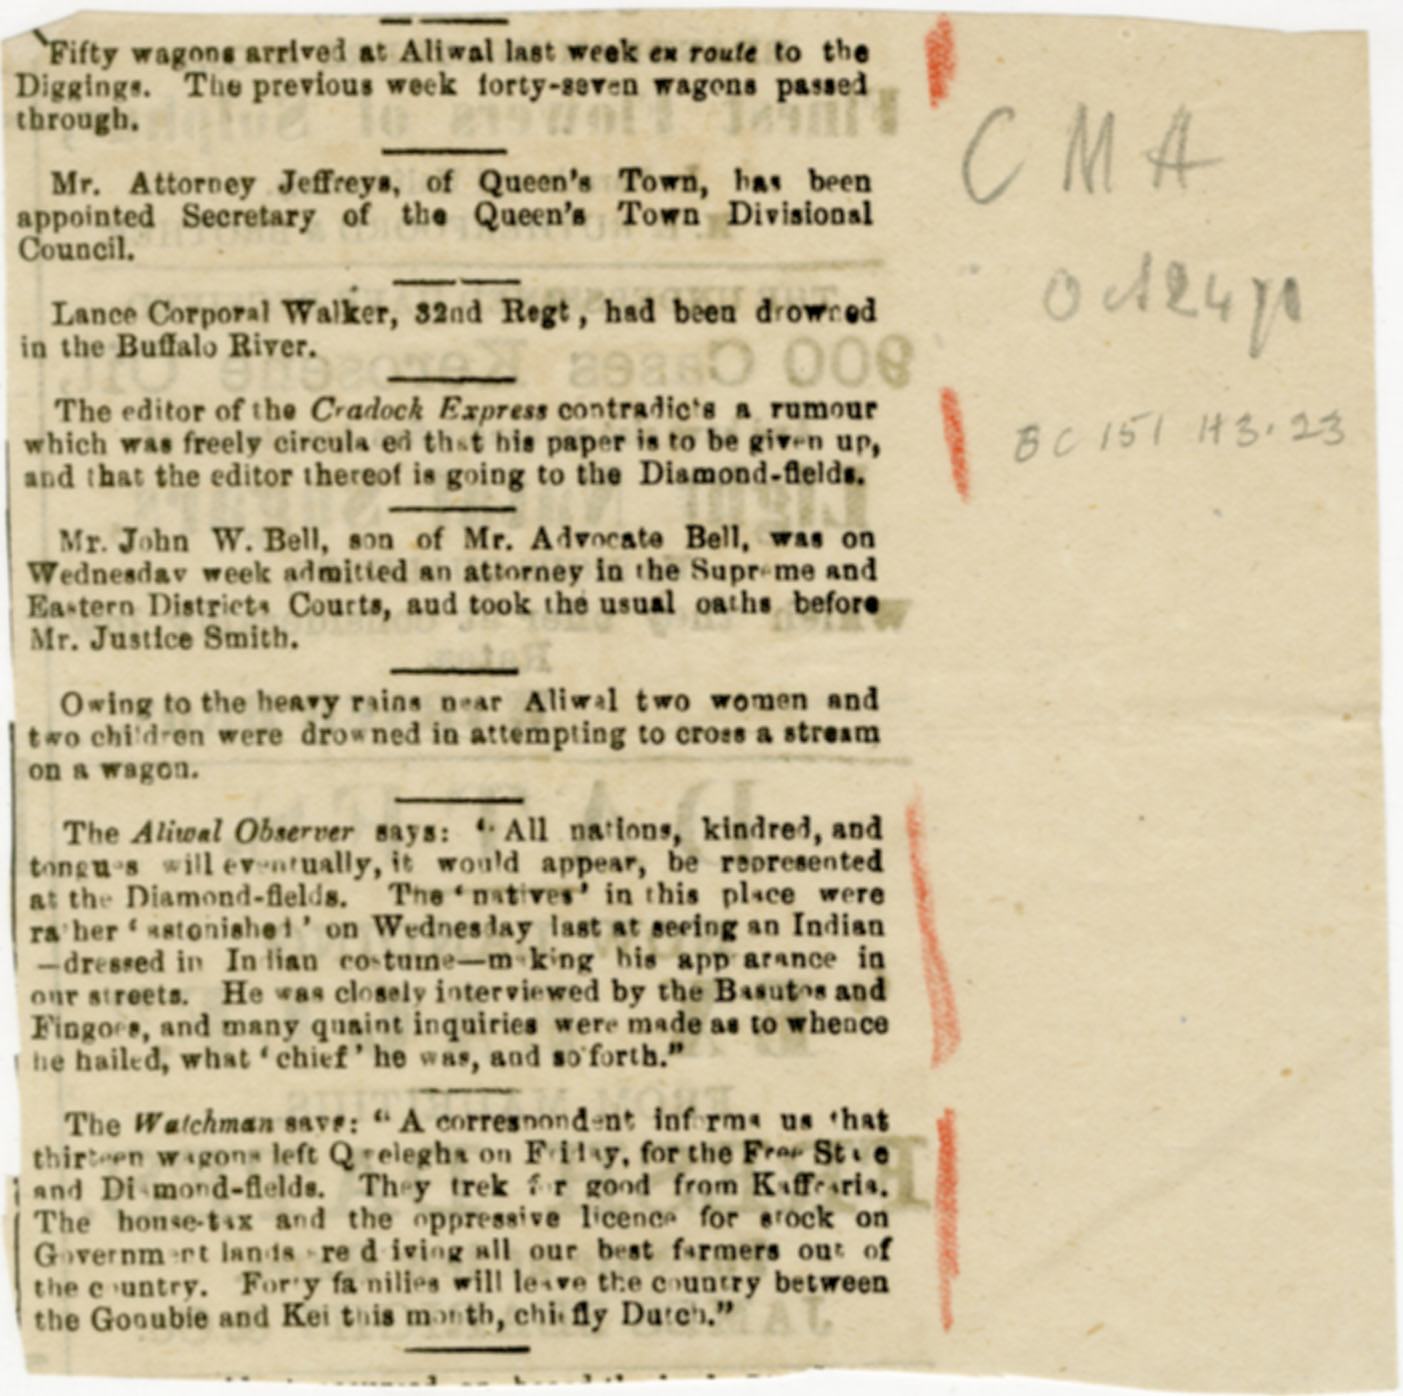 Fifty wagons arrived at Aliwal last week en route to the
Diggings. The previous week forty-seven wagons passed
through.
Mr. Attorney Jeffreys, of Queen's Town, has been
appointed Secretary of the Queen's Town Divisional
Council.
Lance Corporal Walker, 32nd Regt, had been drowned
in the Buffalo River.
The editor of the Cradock Express contradicts a rumour
which was freely circulated that his paper is to be given up,
and that the editor thereof is going to the Diamond-fields.
Mr. John W. Bell, son of Mr. Advocate Bell, was on
Wednesday week admitted an attorney in the Supreme and
Eastern Districts Courts, and took the usual oaths before
Mr. Justice Smith.
Owing to the heavy rains near Aliwal two women and
two children were drowned in attempting to cross a stream
on a wagon.
The Aliwal Observer says: "All nations, kindred, and
tongues will eventually, it would appear, be represented
at the Diamond-fields. The 'natives' in this place were
rather 'astonished' on Wednesday last at seeing an Indian
—dressed in Indian costume—making his appearance in
our streets. He was closely interviewed by the Basutos and
Fingoes, and many quaint inquiries were made as to whence
he hailed, what 'chief' he was, and so forth."
The Watchman says: "A correspondent informs us that
thirteen wagons left Quelegha on Friday, for the Free State
and Diamond-fields. They trek for good from Kaffraria.
The house-tax and the oppressive licence for stock on
Government lands are driving all our best farmers out of
the country. Forty families will leave the country between
the Gonubie and Kei this month, chiefly Dutch."
C M A
Oct 24 71
BC 151 H3.23